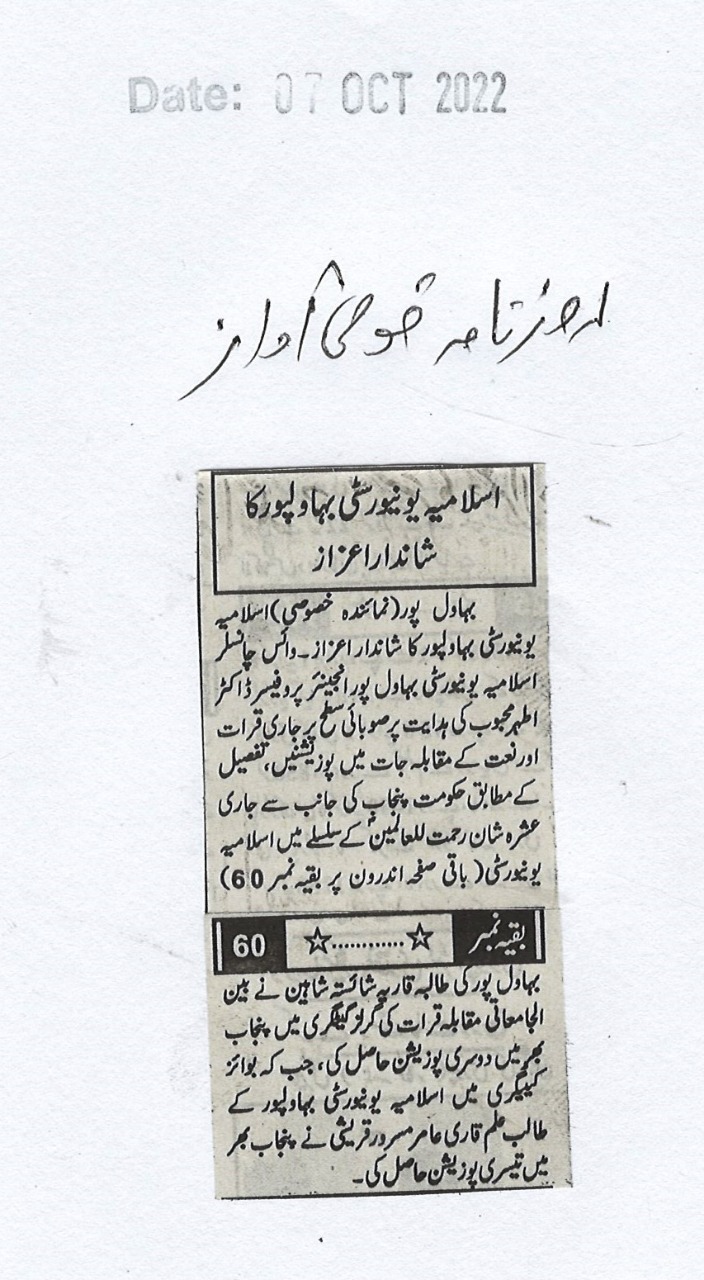 Date: 07 OCT 2022
روزنامہ قومی آواز
اسلامیہ یونیورسٹی بہاولپور کا
شاندار اعزاز
بہاول پور (نمائندہ خصوصی) اسلامیہ
یونیورسٹی بہاولپور کا شاندار اعزاز۔ وائس چانسلر
اسلامیہ یونیورسٹی بہاول پور انجینئر پروفیسر ڈاکٹر
اطہر محبوب کی ہدایت پر صوبائی سطح پر جاری قرات
اور نعت کے مقابلہ جات میں پوزیشنیں، تفصیل
کے مطابق حکومت پنجاب کی جانب سے جاری
عشرہ شان رحمت للعالمینؐ کے سلسلے میں اسلامیہ
یونیورسٹی (باقی صفحہ اندرون پر بقیہ نمبر 60)
بقیہ نمبر ☆............☆ 60
بہاول پور کی طالبہ قاریہ شائستہ شاہین نے بین
الجامعاتی مقابلہ قرات کی گرلز کیٹگری میں پنجاب
بھر میں دوسری پوزیشن حاصل کی، جب کہ بوائز
کیٹیگری میں اسلامیہ یونیورسٹی بہاولپور کے
طالب علم قاری عامر مسرور قریشی نے پنجاب بھر
میں تیسری پوزیشن حاصل کی۔